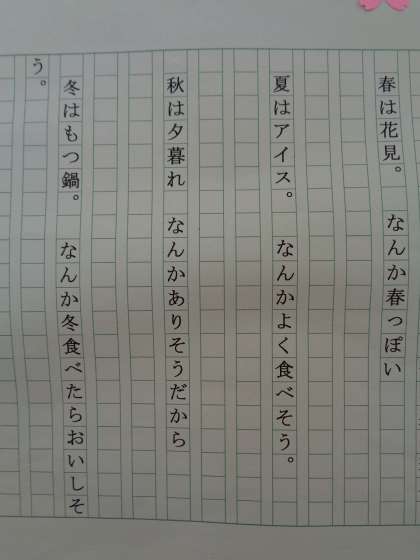 春は花見。　なんか春っぽい
夏はアイス。　なんかよく食べそう。
秋は夕暮れ　なんかありそうだから
冬はもつ鍋。　なんか冬食べたらおいしそ
う。